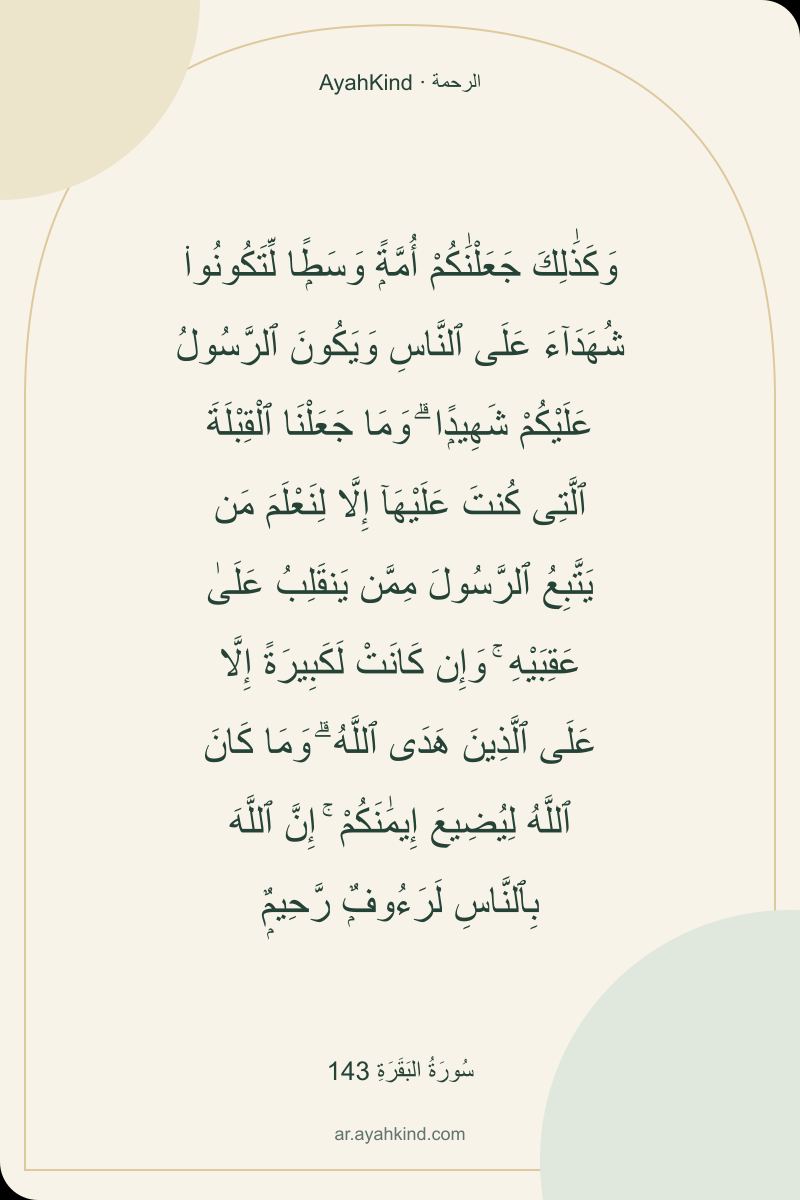 AyahKind · الرحمة
وَكَذَٰلِكَ جَعَلْنَٰكُمْ أُمَّةًۭ وَسَطًۭا لِّتَكُونُوا۟
شُهَدَآءَ عَلَى ٱلنَّاسِ وَيَكُونَ ٱلرَّسُولُ
عَلَيْكُمْ شَهِيدًۭا ۗ وَمَا جَعَلْنَا ٱلْقِبْلَةَ
ٱلَّتِى كُنتَ عَلَيْهَآ إِلَّا لِنَعْلَمَ مَن
يَتَّبِعُ ٱلرَّسُولَ مِمَّن يَنقَلِبُ عَلَىٰ
عَقِبَيْهِ ۚ وَإِن كَانَتْ لَكَبِيرَةً إِلَّا
عَلَى ٱلَّذِينَ هَدَى ٱللَّهُ ۗ وَمَا كَانَ
ٱللَّهُ لِيُضِيعَ إِيمَٰنَكُمْ ۚ إِنَّ ٱللَّهَ
بِٱلنَّاسِ لَرَءُوفٌۭ رَّحِيمٌۭ
سُورَةُ البَقَرَةِ 143
ar.ayahkind.com